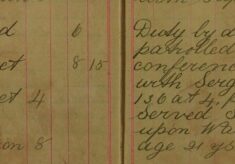 d 6
Duty by d
patrolled
conference
et 8 15
with Serg
et 4
136 at 4, p
served S
upon Wa
on 8
age 21 ys